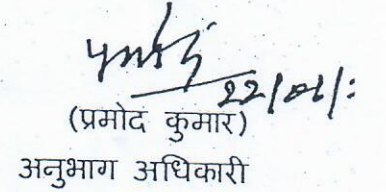 22/
(प्रमोद कुमार)
अनुभाग अधिकारी